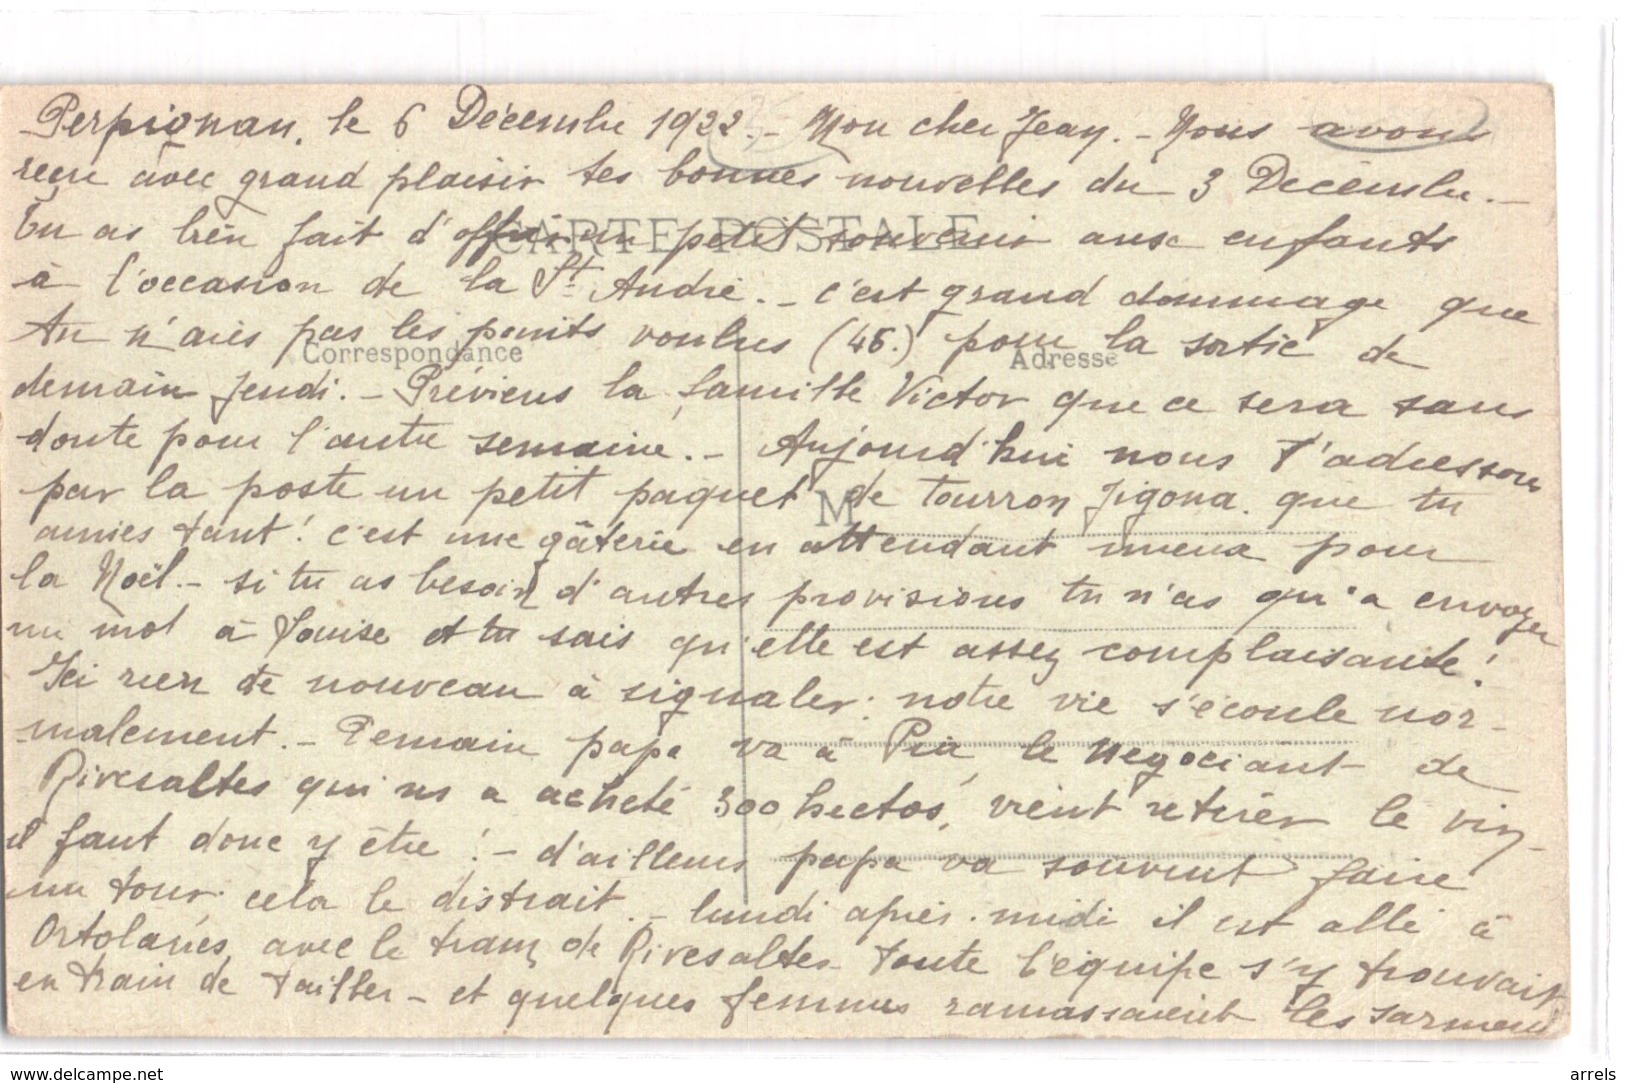 Perpignan, le 6 Décembre 1922. - Mon cher Jean. - Nous avons
reçu avec grand plaisir tes bonnes nouvelles du 3 Décembre. -
CARTE POSTALE
Tu as bien fait d'offrir un petit souvenir aux enfants
à l'occasion de la St André. - c'est grand dommage que
tu n'aies pas les points voulus (45.) pour la sortie de
Correspondance
Adresse
demain Jeudi. - Préviens la famille Victor que ce sera sans
doute pour l'autre semaine. - Aujourd'hui nous t'adressons
par la poste un petit paquet de Tourron Jigona. que tu
M
aimes tant! c'est une gâterie en attendant mieux pour
la Noël. - si tu as besoin d'autres provisions tu n'as qu'à envoyer
un mot à Louise et tu sais qu'elle est assez complaisante!
Ici rien de nouveau à signaler: notre vie s'écoule nor-
malement. - Demain papa va à Pia, le négociant de
Rivesaltes qui ns a acheté 300 hectos, vient retirer le vin -
il faut donc y être! - d'ailleurs papa va souvent faire
un tour. cela le distrait. - lundi après-midi il est allé à
Ortolanes, avec le tram de Rivesaltes toute l'équipe s'y trouvait
en train de tailler - et quelques femmes ramassaient les sarments
www.delcampe.net
arrels